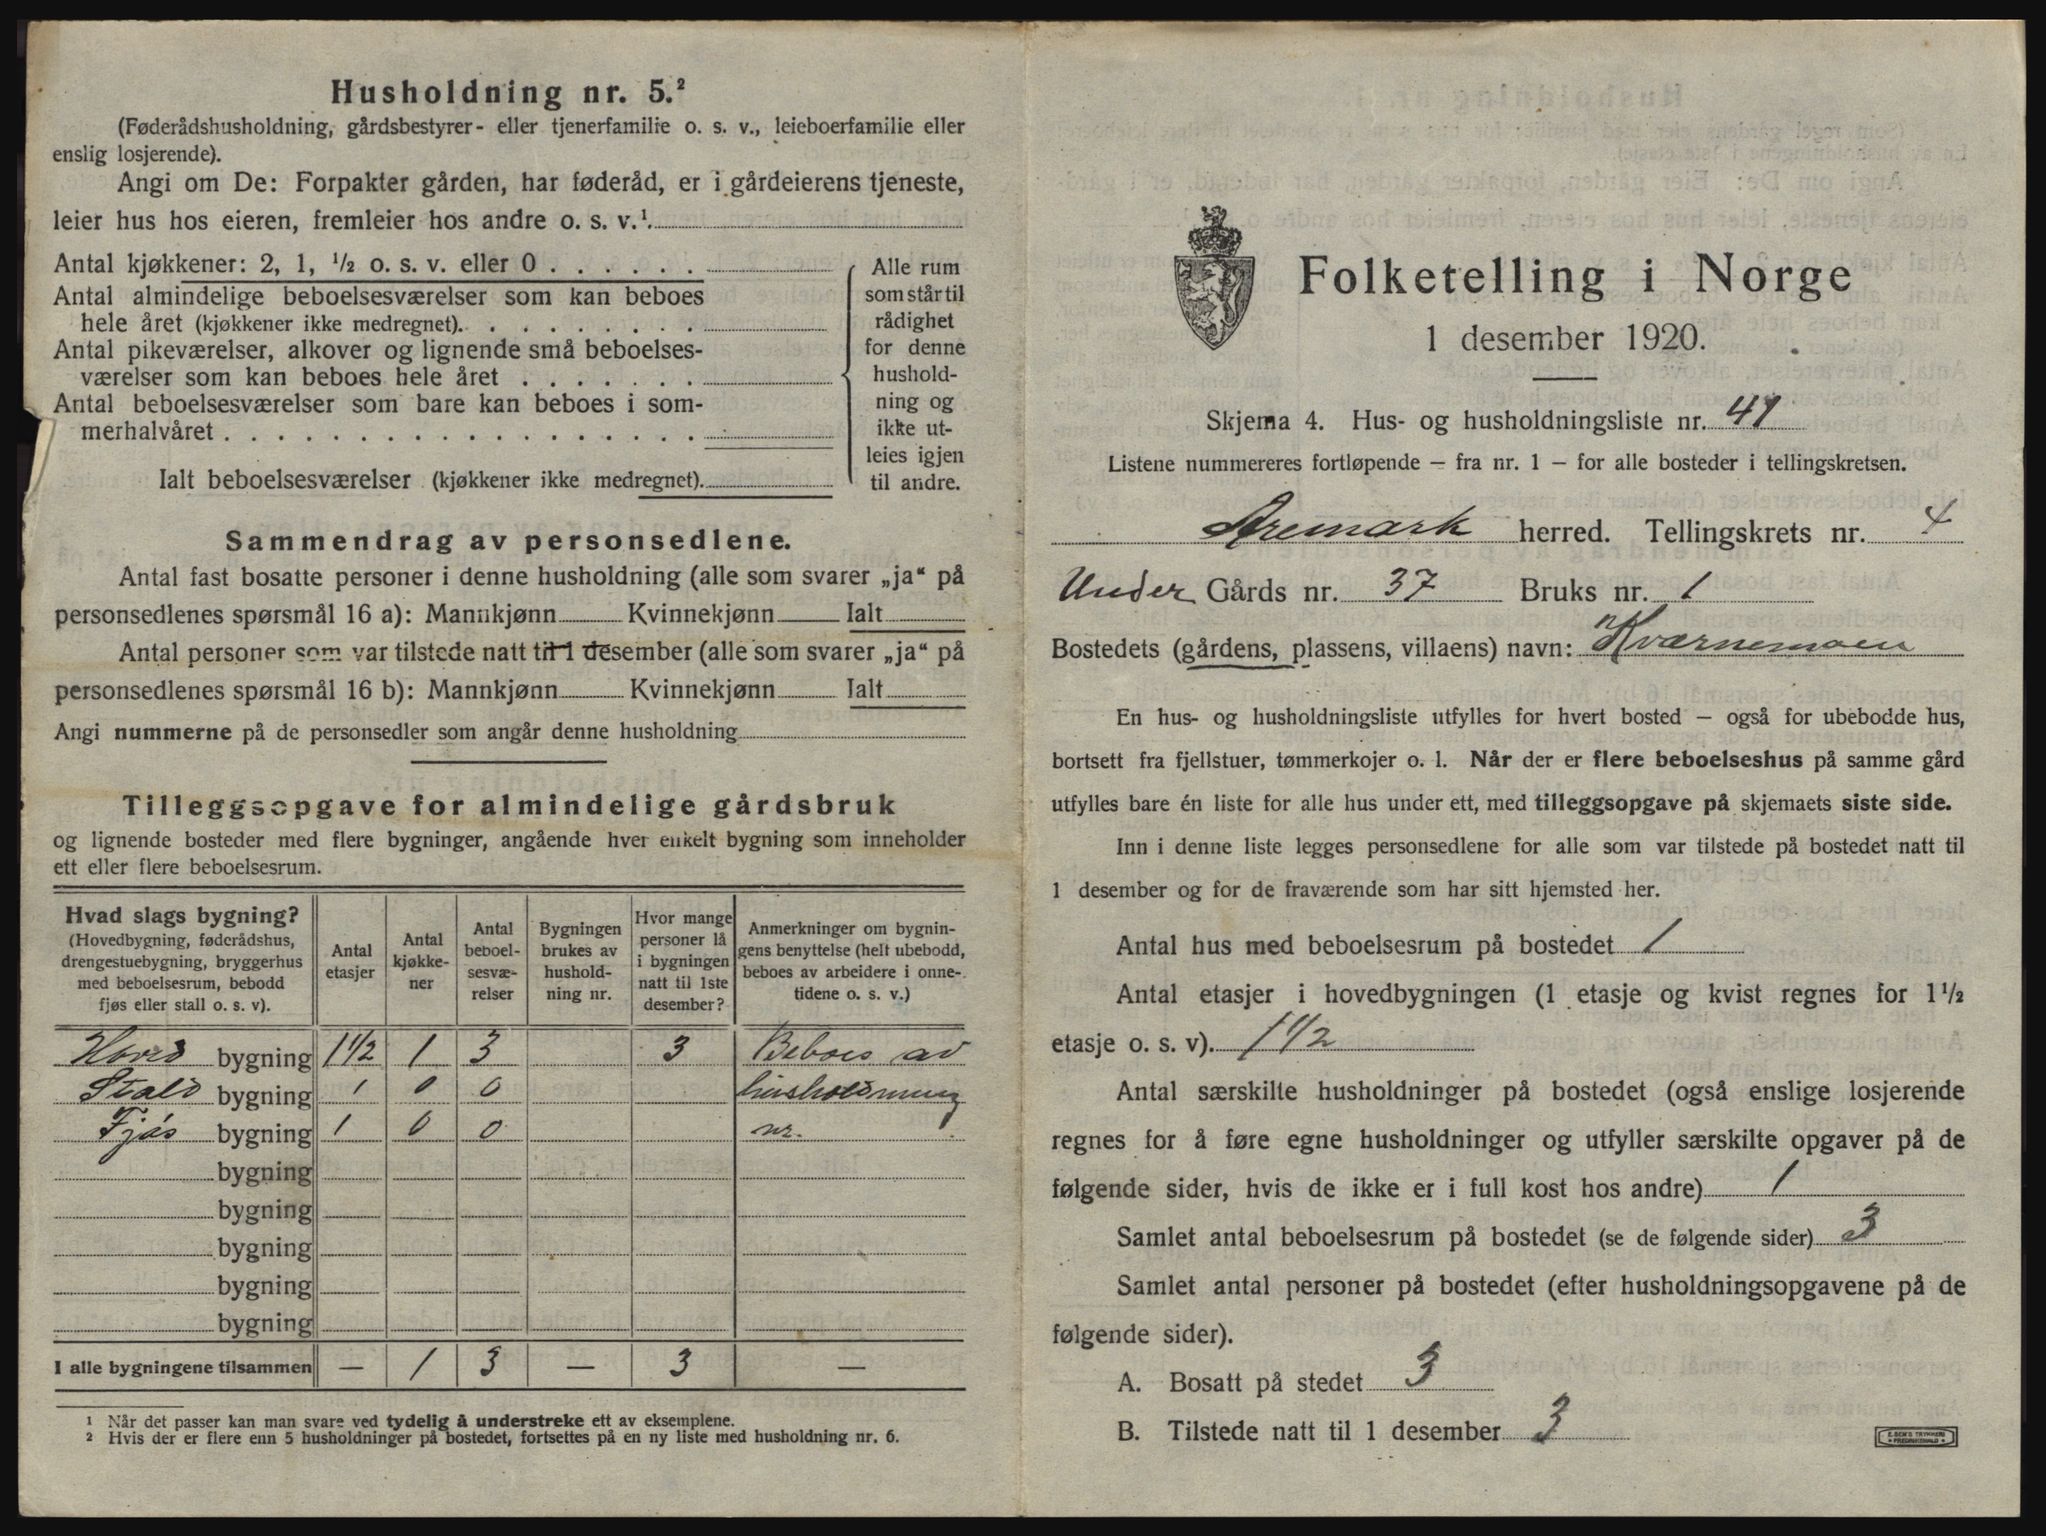 Husholdning nr. 5.²
(Føderådshusholdning, gårdsbestyrer- eller tjenerfamilie o. s. v., leieboerfamilie eller
enslig losjerende).
Angi om De: Forpakter gården, har føderåd, er i gårdeierens tjeneste,
leier hus hos eieren, fremleier hos andre o. s. v.¹
Antal kjøkkener: 2, 1, ½ o. s. v. eller 0
Antal almindelige beboelsesværelser som kan beboes
hele året (kjøkkener ikke medregnet).
Antal pikeværelser, alkover og lignende små beboelses-
værelser som kan beboes hele året
Antal beboelsesværelser som bare kan beboes i som-
merhalvåret
Ialt beboelsesværelser (kjøkkener ikke medregnet).
Alle rum
som står til
rådighet
for denne
hushold-
ning og
ikke ut-
leies igjen
til andre.
Sammendrag av personsedlene.
Antal fast bosatte personer i denne husholdning (alle som svarer „ja“ på
personsedlenes spørsmål 16 a): Mannkjønn Kvinnekjønn Ialt
Antal personer som var tilstede natt til 1 desember (alle som svarer „ja“ på
personsedlenes spørsmål 16 b): Mannkjønn Kvinnekjønn Ialt
Angi nummerne på de personsedler som angår denne husholdning
Tilleggsopgave for almindelige gårdsbruk
og lignende bosteder med flere bygninger, angående hver enkelt bygning som inneholder
ett eller flere beboelsesrum.
Hvad slags bygning?
(Hovedbygning, føderådshus,
drengestuebygning, bryggerhus
med beboelsesrum, bebodd
fjøs eller stall o. s. v).
Antal
etasjer
Antal
kjøkke-
ner
Antal
beboel-
sesvæ-
relser
Bygningen
brukes av
hushold-
ning nr.
Hvor mange
personer lå
i bygningen
natt til 1ste
desember?
Anmerkninger om bygnin-
gens benyttelse (helt ubebodd,
beboes av arbeidere i onne-
tidene o. s. v.)
Hoved bygning 1½ 1 3 3 Beboes av
Stald bygning 1 0 0 husholdning
Fjøs bygning 1 0 0 nr. 1
bygning
bygning
bygning
bygning
bygning
I alle bygningene tilsammen — 1 3 — 3 —
¹ Når det passer kan man svare ved tydelig å understreke ett av eksemplene.
² Hvis der er flere enn 5 husholdninger på bostedet, fortsettes på en ny liste med husholdning nr. 6.
Folketelling i Norge
1 desember 1920.
Skjema 4. Hus- og husholdningsliste nr. 41
Listene nummereres fortløpende – fra nr. 1 – for alle bosteder i tellingskretsen.
Aremark herred. Tellingskrets nr. 4
Under Gårds nr. 37 Bruks nr. 1
Bostedets (gårdens, plassens, villaens) navn: Kværnemoen
En hus- og husholdningsliste utfylles for hvert bosted – også for ubebodde hus,
bortsett fra fjellstuer, tømmerkojer o. l. Når der er flere beboelseshus på samme gård
utfylles bare én liste for alle hus under ett, med tilleggsopgave på skjemaets siste side.
Inn i denne liste legges personsedlene for alle som var tilstede på bostedet natt til
1 desember og for de fraværende som har sitt hjemsted her.
Antal hus med beboelsesrum på bostedet 1
Antal etasjer i hovedbygningen (1 etasje og kvist regnes for 1½
etasje o. s. v). 1½
Antal særskilte husholdninger på bostedet (også enslige losjerende
regnes for å føre egne husholdninger og utfyller særskilte opgaver på de
følgende sider, hvis de ikke er i full kost hos andre) 1
Samlet antal beboelsesrum på bostedet (se de følgende sider) 3
Samlet antal personer på bostedet (efter husholdningsopgavene på de
følgende sider).
A. Bosatt på stedet 3
B. Tilstede natt til 1 desember 3